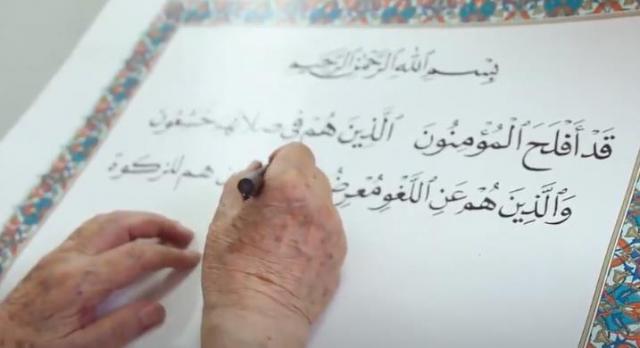 بِسْمِ ٱللَّهِ ٱلرَّحْمَٰنِ ٱلرَّحِيمِ
قَدْ أَفْلَحَ ٱلْمُؤْمِنُونَ ٱلَّذِينَ هُمْ فِي صلاتهم خَٰشِعُونَ
وَٱلَّذِينَ هُمْ عَنِ ٱللَّغْوِ مُعْرِضُ هم للزكوة